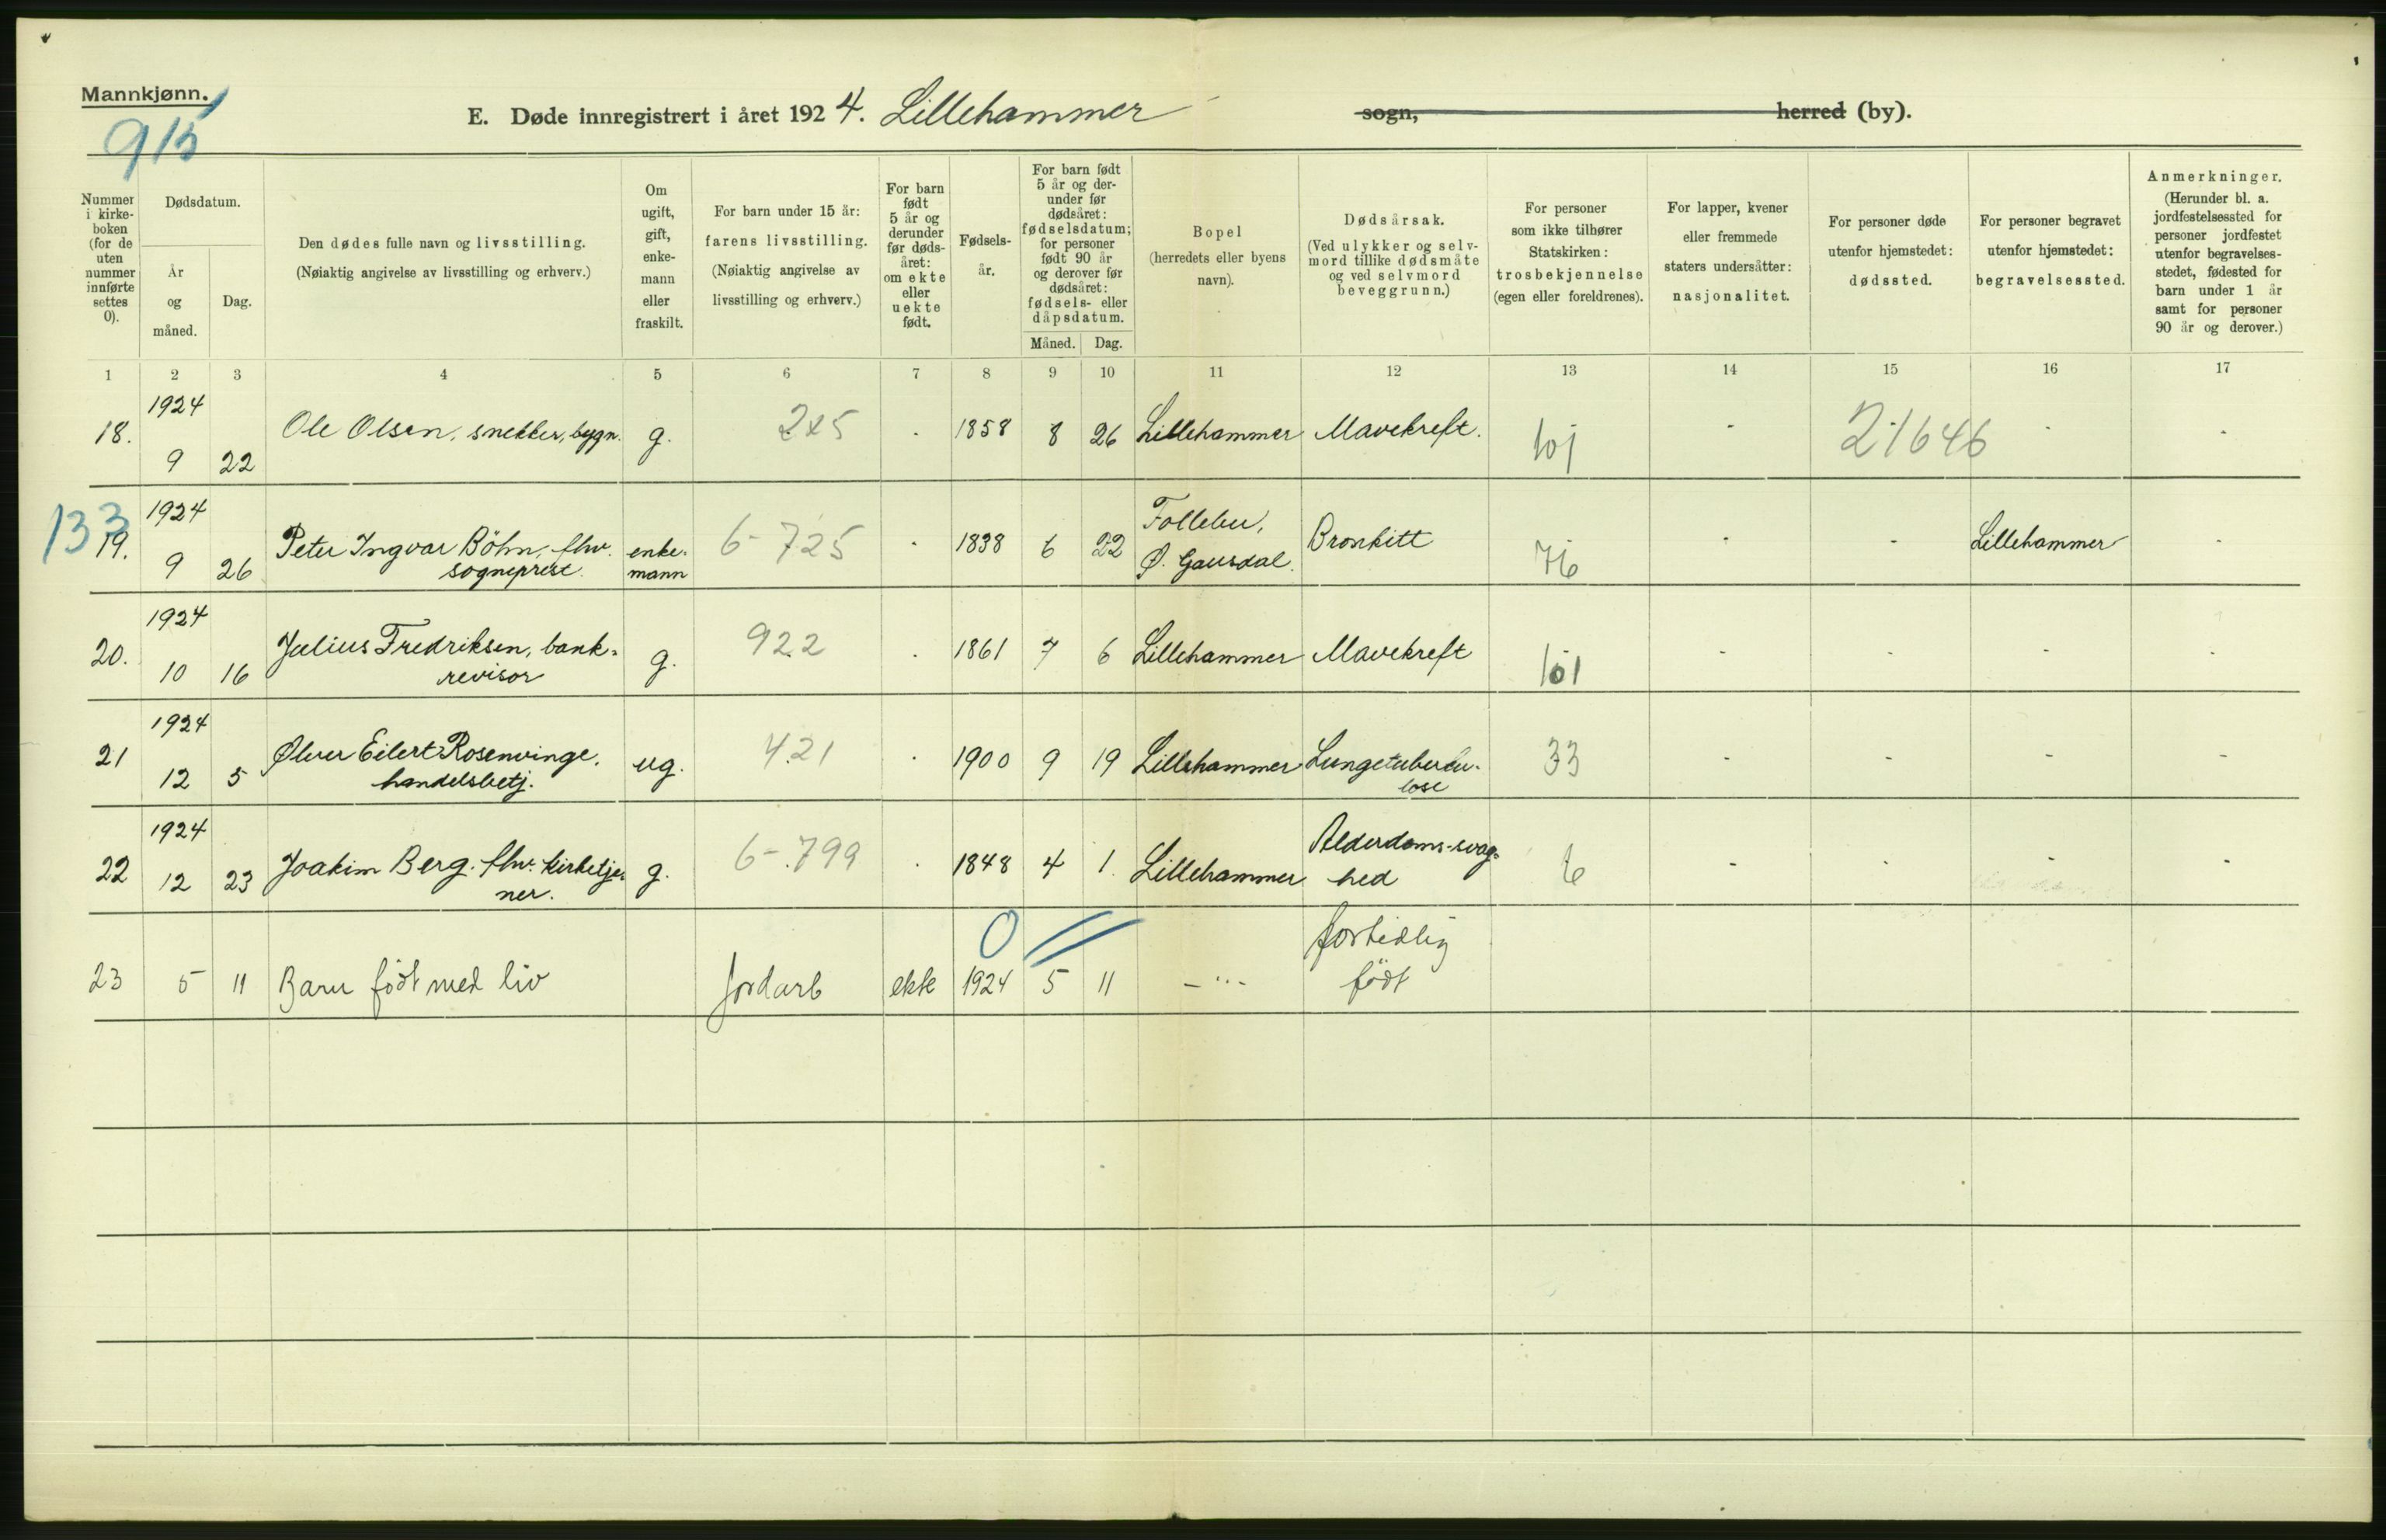 Mannkjønn.
915
E. Døde innregistrert i året 1924. Lillehammer sogn, herred (by).
Nummer i kirkeboken (for de uten nummer innførte settes 0).
Dødsdatum.
År og måned.
Dag.
Den dødes fulle navn og livsstilling.
(Nøiaktig angivelse av livsstilling og erhverv.)
Om ugift, gift, enkemann eller fraskilt.
For barn under 15 år: farens livsstilling.
(Nøiaktig angivelse av livsstilling og erhverv.)
For barn født 5 år og derunder før dødsåret: om ekte eller uekte født.
Fødselsår.
For barn født 5 år og derunder før dødsåret: fødselsdatum; for personer født 90 år og derover før dødsåret: fødsels- eller dåpsdatum.
Måned.
Dag.
Bopel
(herredets eller byens navn).
Dødsårsak.
(Ved ulykker og selvmord tillike dødsmåte og ved selvmord beveggrunn.)
For personer som ikke tilhører Statskirken: trosbekjennelse (egen eller foreldrenes).
For lapper, kvener eller fremmede staters undersåtter: nasjonalitet.
For personer døde utenfor hjemstedet: dødssted.
For personer begravet utenfor hjemstedet: begravelsessted.
Anmerkninger.
(Herunder bl. a. jordfestelsessted for personer jordfestet utenfor begravelsesstedet, fødested for barn under 1 år samt for personer 90 år og derover.)
1 2 3 4 5 6 7 8 9 10 11 12 13 14 15 16 17
18. 1924 9 22 Ole Olsen, snekker, bygn. g. 225 - 1858 8 26 Lillehammer Mavekreft. 101 - 21646 - -
133
19. 1924 9 26 Peter Ingvar Böhn, fhv. sogneprest. enkemann 6-725 - 1838 6 22 Follebu, Ø. Gausdal. Bronkitt 76 - - Lillehammer -
20. 1924 10 16 Julius Fredriksen, bank-revisor g. 922 - 1861 7 6 Lillehammer Mavekreft 101 - - - -
21 1924 12 5 Ølver Eilert Rosenvinge, handelsbetj. ug. 421 - 1900 9 19 Lillehammer Lungetuberku-lose 33 - - - -
22 1924 12 23 Joakim Berg. fhv. kirketje-ner. g. 6-799 - 1848 4 1 Lillehammer Alderdoms-svag-hed 6 - - - -
0 //
23 5 11 Barn født med liv jordarb ekte 1924 5 11 -"- fortidlig født